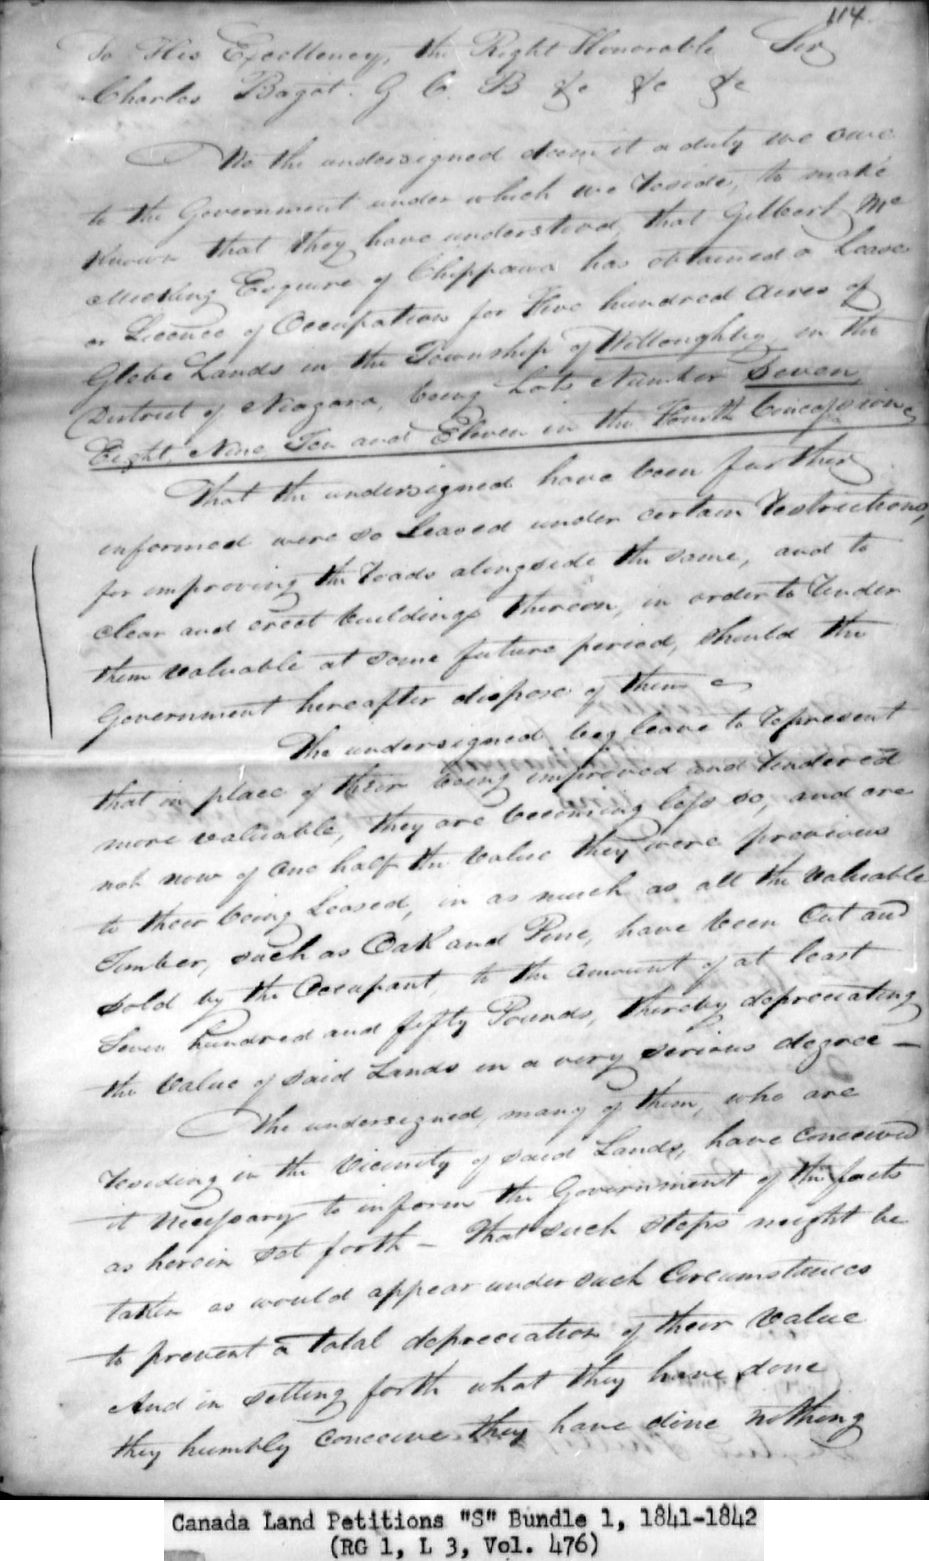 114.
To His Excellency, the Right Honorable Sir
Charles Bagot. G C. B &c &c &c
We the undersigned deem it a duty we owe
to the Government under which we reside, to make
known that they have understood, that Gilbert Mc
Micking Esquire of Chippawa has obtained a Lease
or Licence of Occupation for Five hundred acres of
Glebe Lands in the Township of Willoughby in the
District of Niagara, being Lots Number Seven,
Eight, Nine Ten and Eleven in the Fourth Concession,
That the undersigned have been further
informed were so Leased under certain restrictions,
for improving the roads alongside the same, and to
clear and erect buildings thereon, in order to render
them valuable at some future period, should the
Government hereafter dispose of them
The undersigned beg leave to represent
that in place of their being improved and rendered
more valuable, they are becoming less so, and are
not now of one half the value they were previous
to their being Leased, in as much as all the valuable
Timber, such as Oak and Pine, have been Cut and
sold by the Occupant, to the amount of at least
Seven hundred and fifty Pounds, thereby depreciating
the value of said Lands in a very serious degree —
The undersigned, many of them, who are
residing in the vicinity of said Lands, have conceived
it necessary to inform the Government of the facts
as herein set forth — That such steps might be
taken as would appear under such Circumstances
to prevent a total depreciation of their value
And in setting forth what they have done
they humbly conceive they have done nothing
Canada Land Petitions "S" Bundle 1, 1841-1842
(RG 1, L 3, Vol. 476)